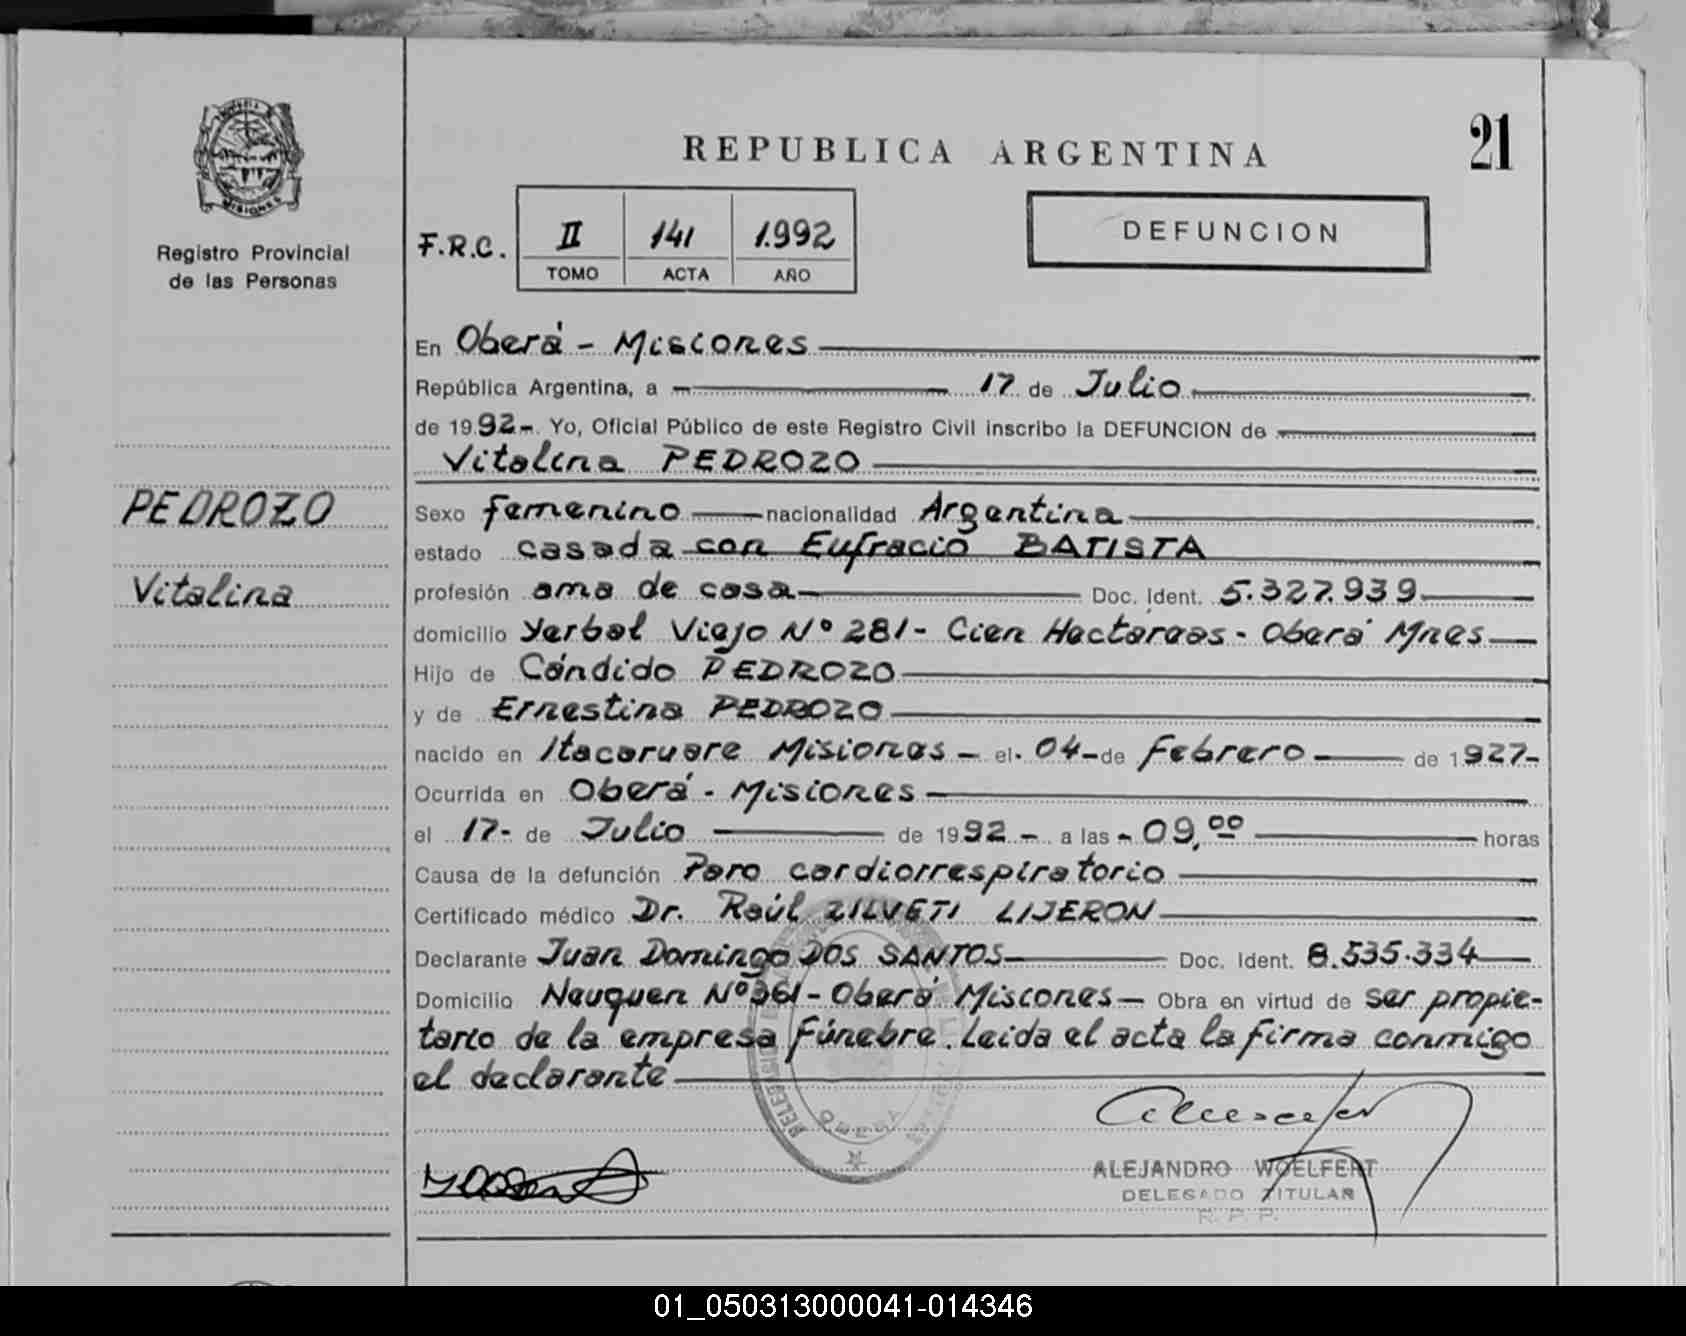 MISIONES
Registro Provincial
de las Personas
PEDROZO
Vitalina
REPUBLICA ARGENTINA
21
F.R.C.
II 141 1.992
TOMO ACTA AÑO
DEFUNCION
En Oberá - Misiones
República Argentina, a 17 de Julio
de 1992-. Yo, Oficial Público de este Registro Civil inscribo la DEFUNCION de
Vitalina PEDROZO
Sexo femenino nacionalidad Argentina
estado casada con Eufracio BATISTA
profesión ama de casa Doc. Ident. 5.327.939
domicilio Yerbal Viejo Nº 281- Cien Hectareas - Oberá Mnes
Hijo de Cándido PEDROZO
y de Ernestina PEDROZO
nacido en Itacaruare Misiones - el 04- de febrero de 1927-
Ocurrida en Oberá - Misiones
el 17- de Julio de 1992 - a las - 09,00 horas
Causa de la defunción Paro cardiorrespiratorio
Certificado médico Dr. Raúl ZILVETI LIJERON
Declarante Juan Domingo DOS SANTOS Doc. Ident. 8.535.334
Domicilio Neuquen Nº361- Oberá Misiones - Obra en virtud de ser propie-
tario de la empresa fúnebre. Leida el acta la firma conmigo
el declarante
OBERA
ALEJANDRO WOELFERT
DELEGADO TITULAR
R. P. P.
01_050313000041-014346